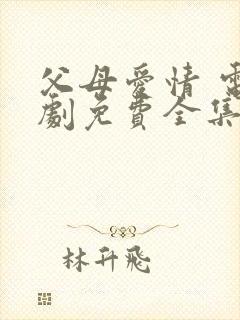 父母愛情
劇免費全集
林升飛